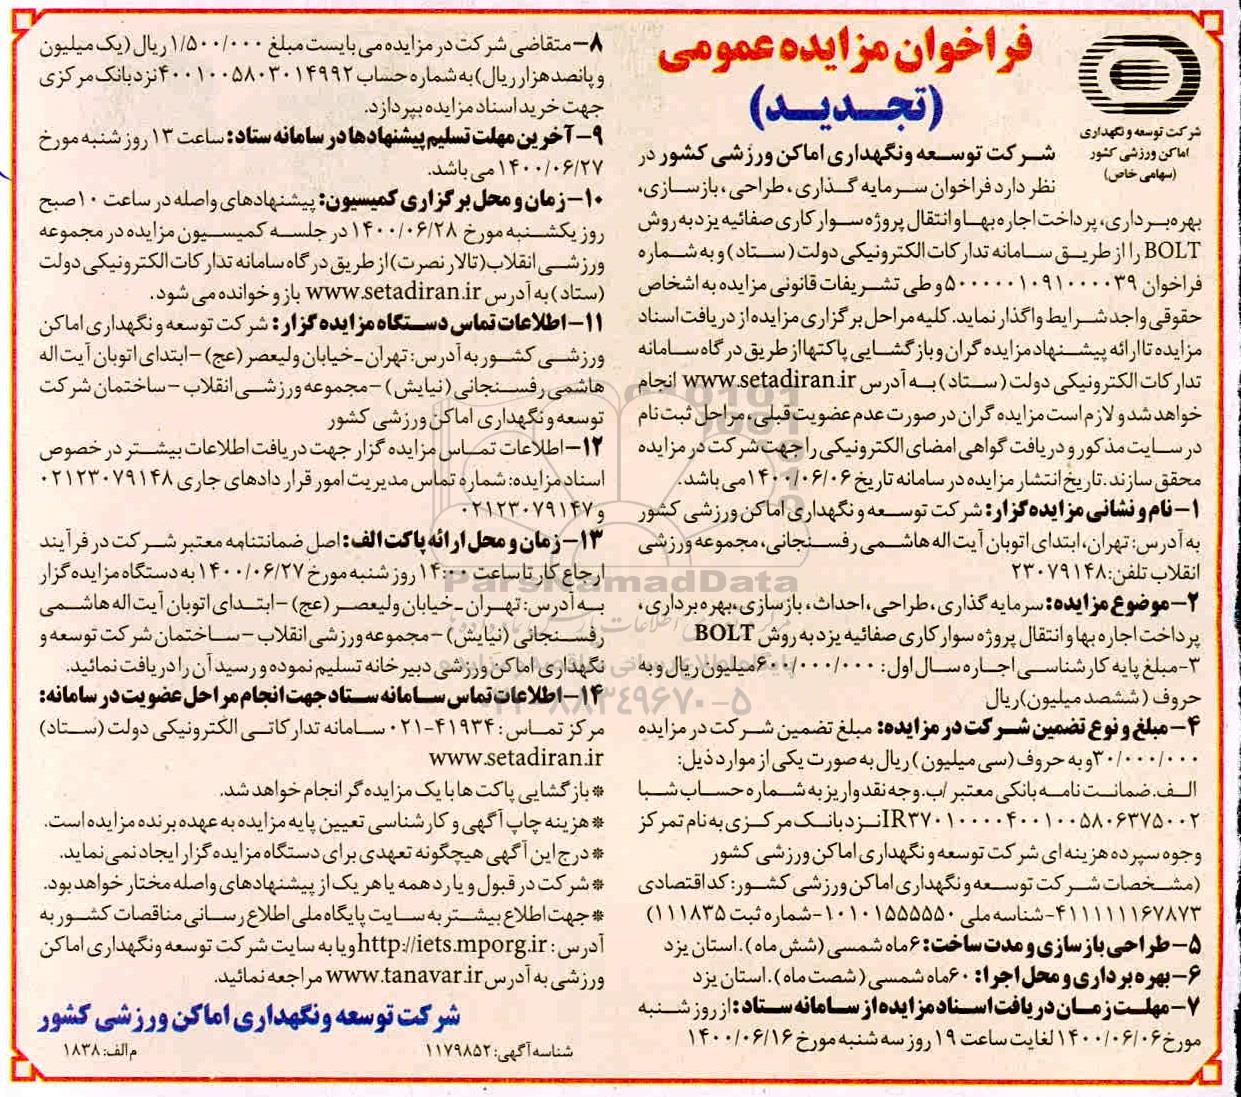 فراخوان مزایده عمومی
(تجدید)
شرکت توسعه و نگهداری
اماکن ورزشی کشور
(سهامی خاص)
شرکت توسعه ونگهداری اماکن ورزشی کشور در
نظر دارد فراخوان سرمایه گذاری، طراحی، بازسازی،
بهره برداری، پرداخت اجاره بها و انتقال پروژه سوارکاری صفائیه یزد به روش
BOLT را از طریق سامانه تدارکات الکترونیکی دولت (ستاد) و به شماره
فراخوان ۵۰۰۰۰۰۱۰۹۱۰۰۰۰۳۹ و طی تشریفات قانونی مزایده به اشخاص
حقوقی واجد شرایط واگذار نماید. کلیه مراحل برگزاری مزایده از دریافت اسناد
مزایده تا ارائه پیشنهاد مزایده گران و بازگشایی پاکتها از طریق درگاه سامانه
تدارکات الکترونیکی دولت (ستاد) به آدرس www.setadiran.ir انجام
خواهد شد و لازم است مزایده گران در صورت عدم عضویت قبلی، مراحل ثبت نام
در سایت مذکور و دریافت گواهی امضای الکترونیکی را جهت شرکت در مزایده
محقق سازند. تاریخ انتشار مزایده در سامانه تاریخ ۱۴۰۰/۰۶/۰۶ می باشد.
۱- نام و نشانی مزایده گزار: شرکت توسعه و نگهداری اماکن ورزشی کشور
به آدرس: تهران، ابتدای اتوبان آیت اله هاشمی رفسنجانی، مجموعه ورزشی
انقلاب تلفن: ۲۳۰۷۹۱۴۸
۲- موضوع مزایده: سرمایه گذاری، طراحی، احداث، بازسازی، بهره برداری،
پرداخت اجاره بها و انتقال پروژه سوارکاری صفائیه یزد به روش BOLT
۳- مبلغ پایه کارشناسی اجاره سال اول: ۶۰۰/۰۰۰/۰۰۰ میلیون ریال و به
حروف (ششصد میلیون) ریال
۴- مبلغ و نوع تضمین شرکت در مزایده: مبلغ تضمین شرکت در مزایده
۳۰/۰۰۰/۰۰۰ و به حروف (سی میلیون) ریال به صورت یکی از موارد ذیل:
الف. ضمانت نامه بانکی معتبر /ب. وجه نقد واریز به شماره حساب شبا
IR۳۷۰۱۰۰۰۰۴۰۰۱۰۰۵۸۰۶۳۷۵۰۰۲ نزد بانک مرکزی به نام تمرکز
وجوه سپرده هزینه ای شرکت توسعه و نگهداری اماکن ورزشی کشور
(مشخصات شرکت توسعه و نگهداری اماکن ورزشی کشور: کد اقتصادی
۴۱۱۱۱۱۱۶۷۸۷۳-شناسه ملی ۱۰۱۰۱۵۵۵۵۵۰-شماره ثبت ۱۱۱۸۳۵)
۵- طراحی بازسازی و مدت ساخت: ۶ ماه شمسی (شش ماه). استان یزد
۶- بهره برداری و محل اجرا: ۶۰ ماه شمسی (شصت ماه). استان یزد
۷- مهلت زمان دریافت اسناد مزایده از سامانه ستاد: از روز شنبه
مورخ ۱۴۰۰/۰۶/۰۶ لغایت ساعت ۱۹ روز سه شنبه مورخ ۱۴۰۰/۰۶/۱۶
۸- متقاضی شرکت در مزایده می بایست مبلغ ۱/۵۰۰/۰۰۰ ریال (یک میلیون
و پانصد هزار ریال) به شماره حساب ۴۰۰۱۰۰۵۸۰۳۰۱۴۹۹۲ نزد بانک مرکزی
جهت خرید اسناد مزایده بپردازد.
۹- آخرین مهلت تسلیم پیشنهادها در سامانه ستاد: ساعت ۱۳ روز شنبه مورخ
۱۴۰۰/۰۶/۲۷ می باشد.
۱۰- زمان و محل برگزاری کمیسیون: پیشنهادهای واصله در ساعت ۱۰ صبح
روز یکشنبه مورخ ۱۴۰۰/۰۶/۲۸ در جلسه کمیسیون مزایده در مجموعه
ورزشی انقلاب (تالار نصرت) از طریق درگاه سامانه تدارکات الکترونیکی دولت
(ستاد) به آدرس www.setadiran.ir باز و خوانده می شود.
۱۱- اطلاعات تماس دستگاه مزایده گزار: شرکت توسعه و نگهداری اماکن
ورزشی کشور به آدرس: تهران -خیابان ولیعصر (عج) -ابتدای اتوبان آیت اله
هاشمی رفسنجانی (نیایش) - مجموعه ورزشی انقلاب - ساختمان شرکت
توسعه و نگهداری اماکن ورزشی کشور
۱۲- اطلاعات تماس مزایده گزار جهت دریافت اطلاعات بیشتر در خصوص
اسناد مزایده: شماره تماس مدیریت امور قراردادهای جاری ۰۲۱۲۳۰۷۹۱۴۸
و ۰۲۱۲۳۰۷۹۱۴۷
۱۳- زمان و محل ارائه پاکت الف: اصل ضمانتنامه معتبر شرکت در فرآیند
ارجاع کار تا ساعت ۱۴:۰۰ روز شنبه مورخ ۱۴۰۰/۰۶/۲۷ به دستگاه مزایده گزار
به آدرس: تهران -خیابان ولیعصر (عج) -ابتدای اتوبان آیت اله هاشمی
رفسنجانی (نیایش) - مجموعه ورزشی انقلاب - ساختمان شرکت توسعه و
نگهداری اماکن ورزشی دبیرخانه تسلیم نموده و رسید آن را دریافت نمائید.
۱۴- اطلاعات تماس سامانه ستاد جهت انجام مراحل عضویت در سامانه:
مرکز تماس: ۴۱۹۳۴-۰۲۱ سامانه تدارکاتی الکترونیکی دولت (ستاد)
www.setadiran.ir
* بازگشایی پاکت ها با یک مزایده گر انجام خواهد شد.
* هزینه چاپ آگهی و کارشناسی تعیین پایه مزایده به عهده برنده مزایده است.
* درج این آگهی هیچگونه تعهدی برای دستگاه مزایده گزار ایجاد نمی نماید.
* شرکت در قبول و یا رد همه یا هر یک از پیشنهادهای واصله مختار خواهد بود.
* جهت اطلاع بیشتر به سایت پایگاه ملی اطلاع رسانی مناقصات کشور به
آدرس: http://iets.mporg.ir و یا به سایت شرکت توسعه ونگهداری اماکن
ورزشی به آدرس www.tanavar.ir مراجعه نمائید.
شرکت توسعه ونگهداری اماکن ورزشی کشور
شناسه آگهی: ۱۱۷۹۸۵۲
م الف: ۱۸۳۸
ParsNamadData
۰۲۱-۸۸۳۴۹۶۷۰-۵